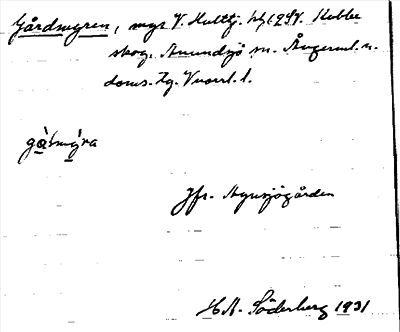 Gårdmyren, myr V. Hultsj. hfl 294. Kubbe
skog, Anundsjö sn. Ångerml. n.
doms. tg. Vnorrl. l.
gɑ̀ṣmýra
Jfr. Agnsjögården
H A. Söderberg 1931